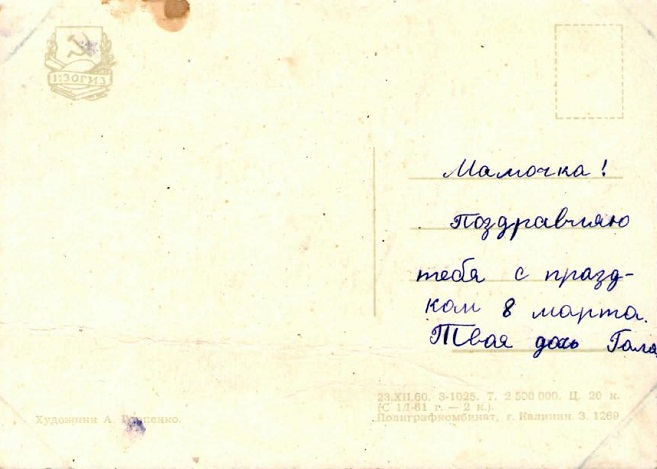 ИЗОГИЗ
Мамочка!
Поздравляю
тебя с празд-
ком 8 марта.
Твая дочь Гала
23.XII.60. З-1025. Т. 2 500 000. Ц. 20 к.
(С 1/I-61 г. — 2 к.).
Полиграфкомбинат, г. Калинин З. 1269
Художник А.